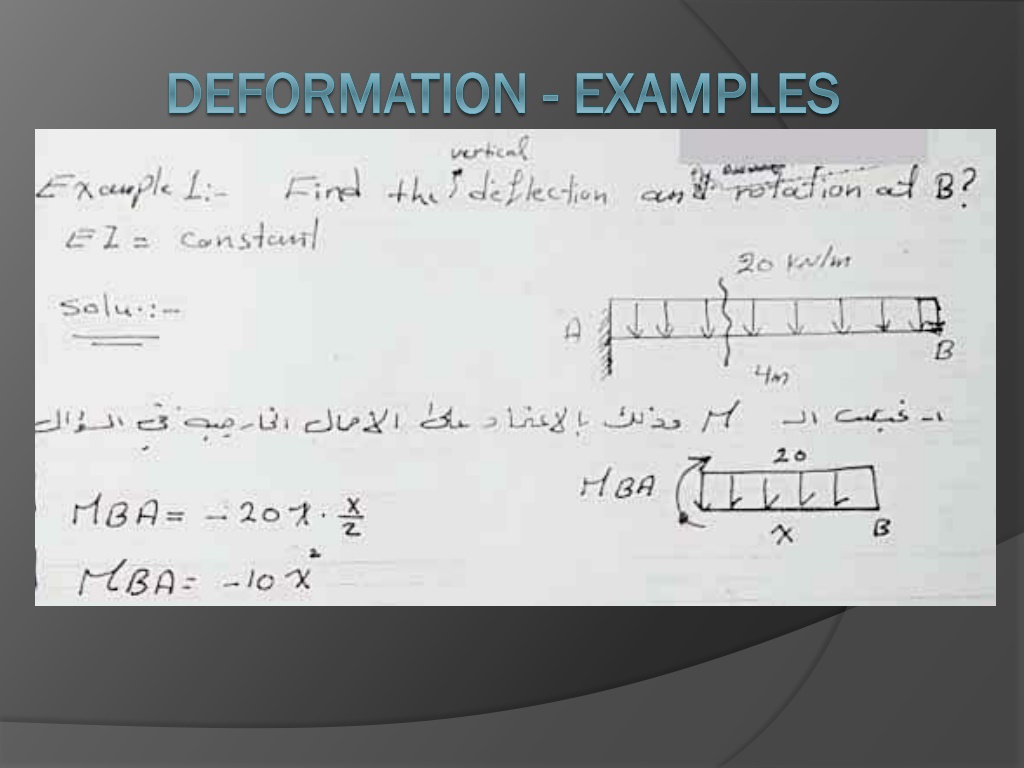 DEFORMATION - EXAMPLES
vertical
Example 1:- Find the deflection and rotation at B?
EI = constant
Solu.:-
20 KN/m
A
B
4m
M وذلك بالاعتماد على الاحمال الخارجيه في السؤال
20
MBA
x
B
MBA = -20x · x/2
MBA = -10x²